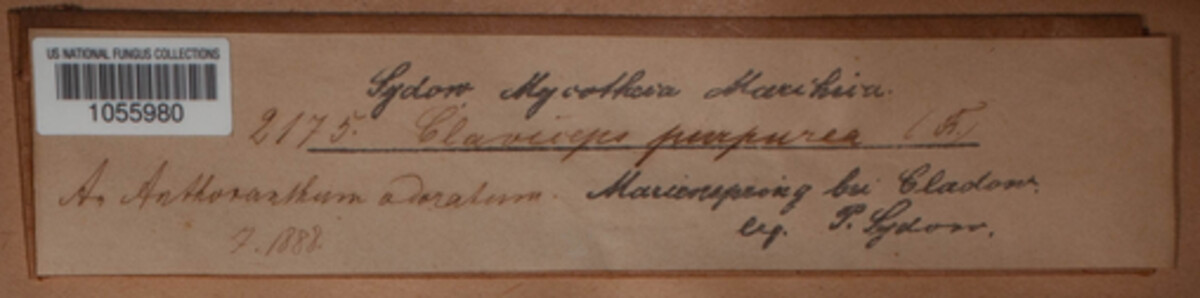 US NATIONAL FUNGUS COLLECTIONS
1055980
Sydow Mycotheca Marchica.
2175. Claviceps purpurea (Fr.)
An Anthoxanthum odoratum. Marienspring bei Cladow.
7. 1888. leg. P. Sydow.